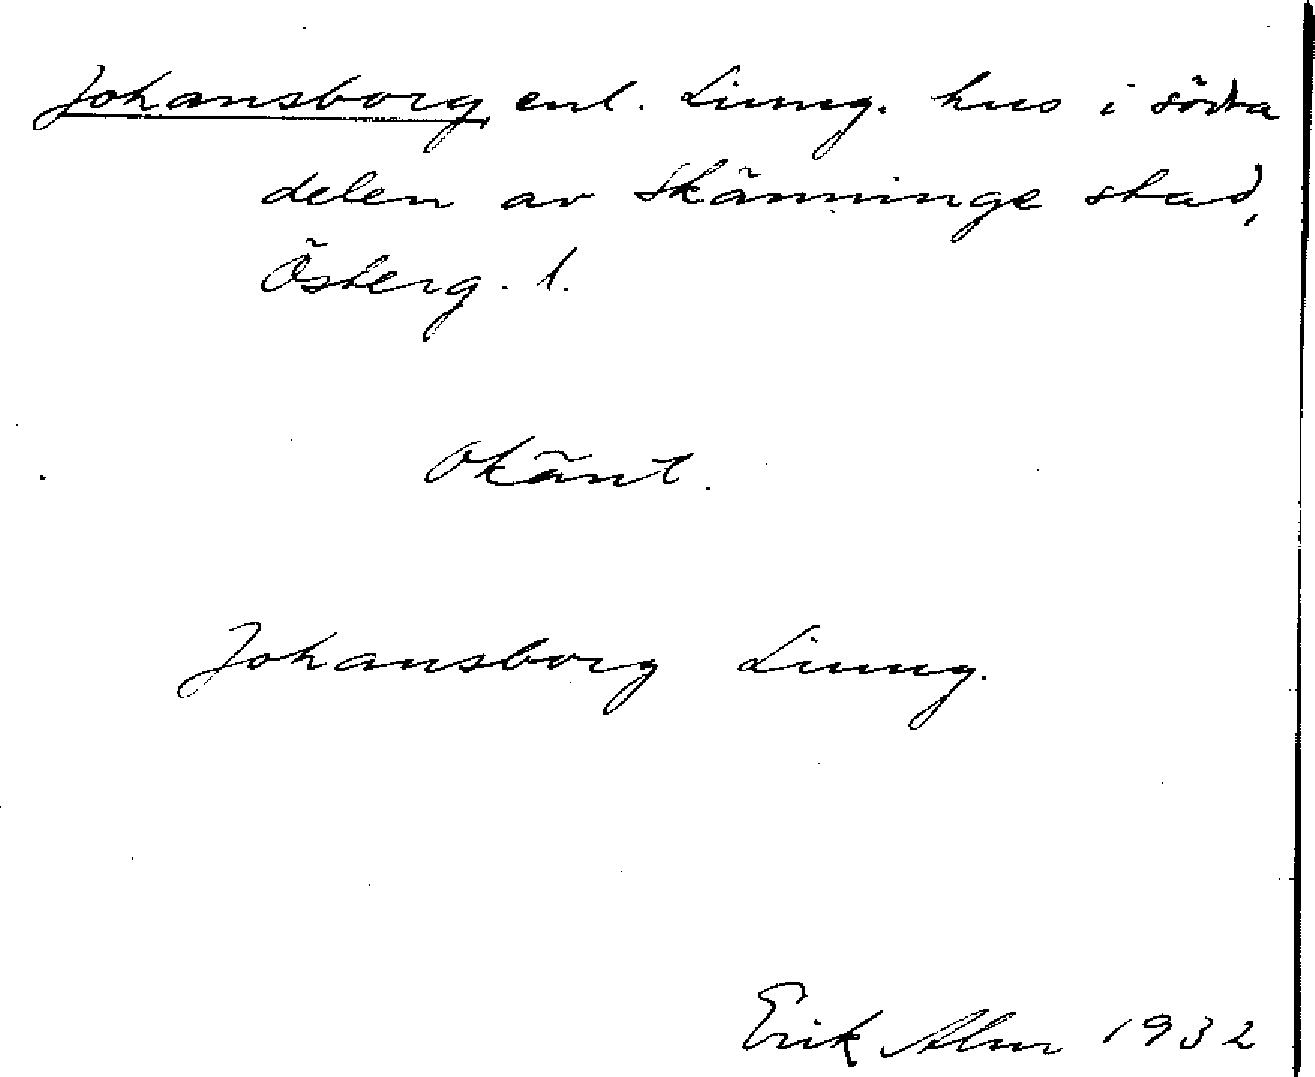 Johansborg enl. Ljung. hus i södra
delen av Skänninge stad,
Österg. l.
Okänt.
Johansborg Ljung.
Erik Alm 1932